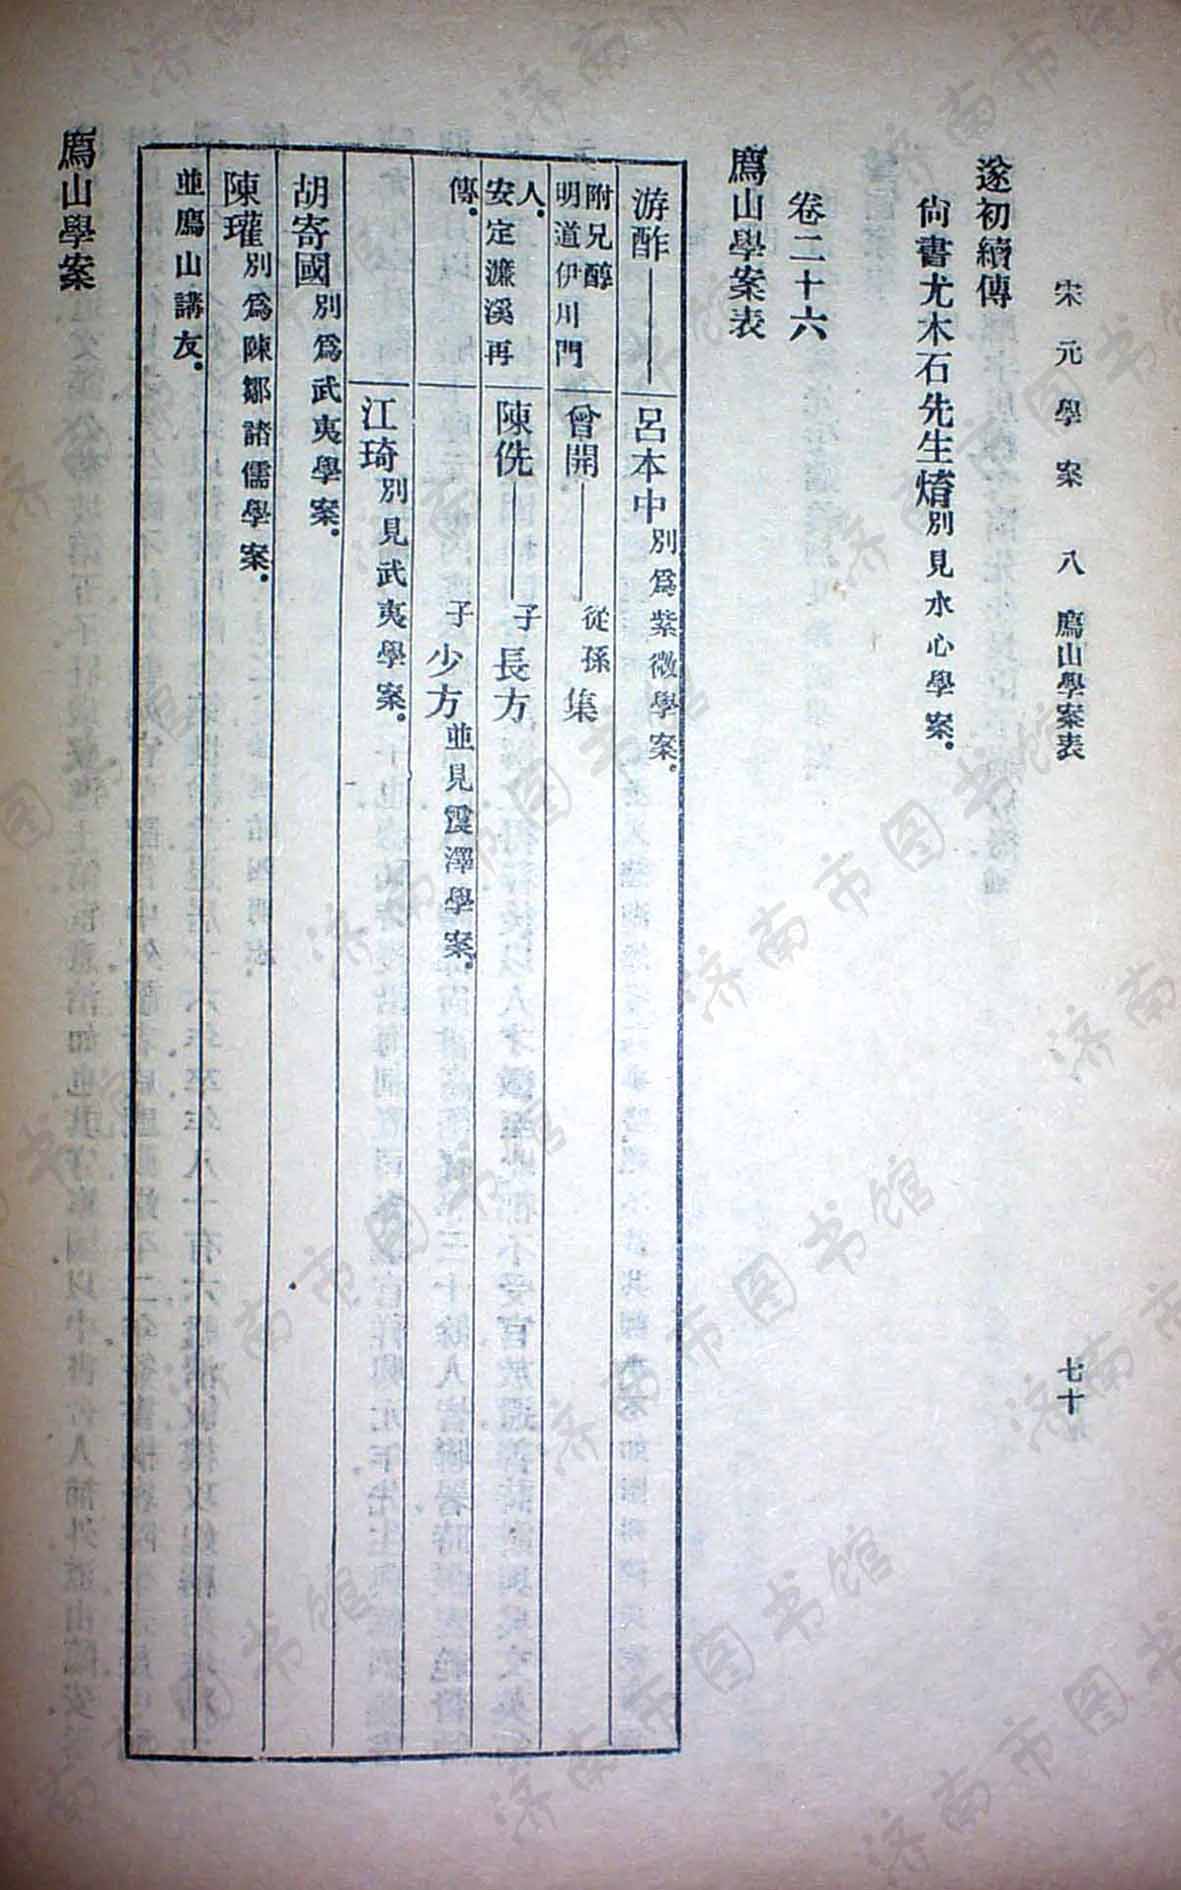 宋元學案 八 廌山學案表 七十
遂初續傳
尙書尤木石先生焴別見水心學案。
卷二十六
廌山學案表
游酢 呂本中別爲紫微學案。
附兄醇
明道伊川門 曾開 從孫集
人。
安定濂溪再 陳侁 子長方
傳。 子少方並見震澤學案。
江琦別見武夷學案。
胡寄國別爲武夷學案。
陳瓘別爲陳鄒諸儒學案。
並廌山講友。
廌山學案
济南市图书馆